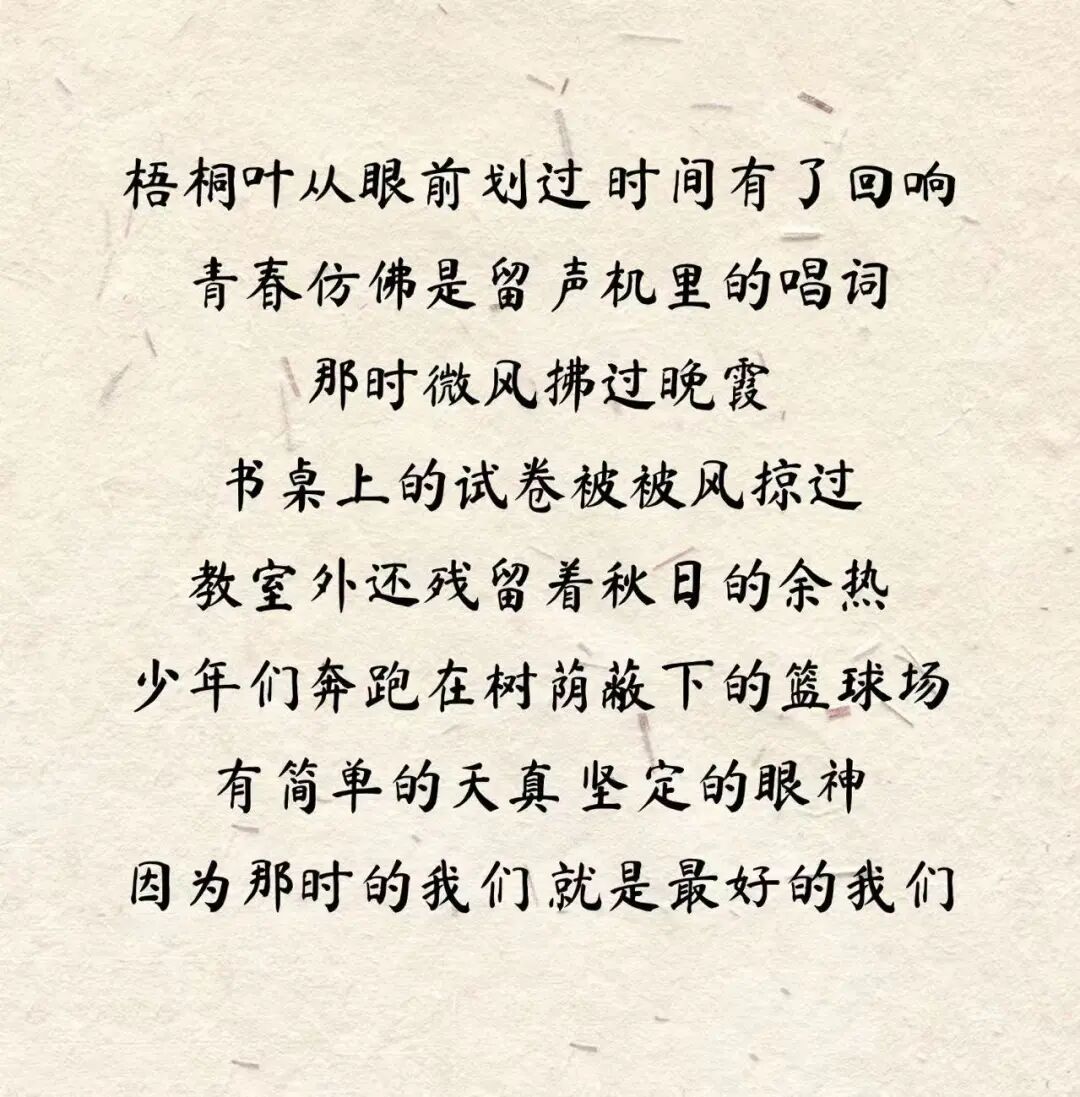 梧桐叶从眼前划过 时间有了回响
青春仿佛是留声机里的唱词
那时微风拂过晚霞
书桌上的试卷被被风掠过
教室外还残留着秋日的余热
少年们奔跑在树荫蔽下的篮球场
有简单的天真 坚定的眼神
因为那时的我们 就是最好的我们